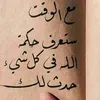 مع الوقت
ستعرف حكمة
الله في كل شيء
حدث لك